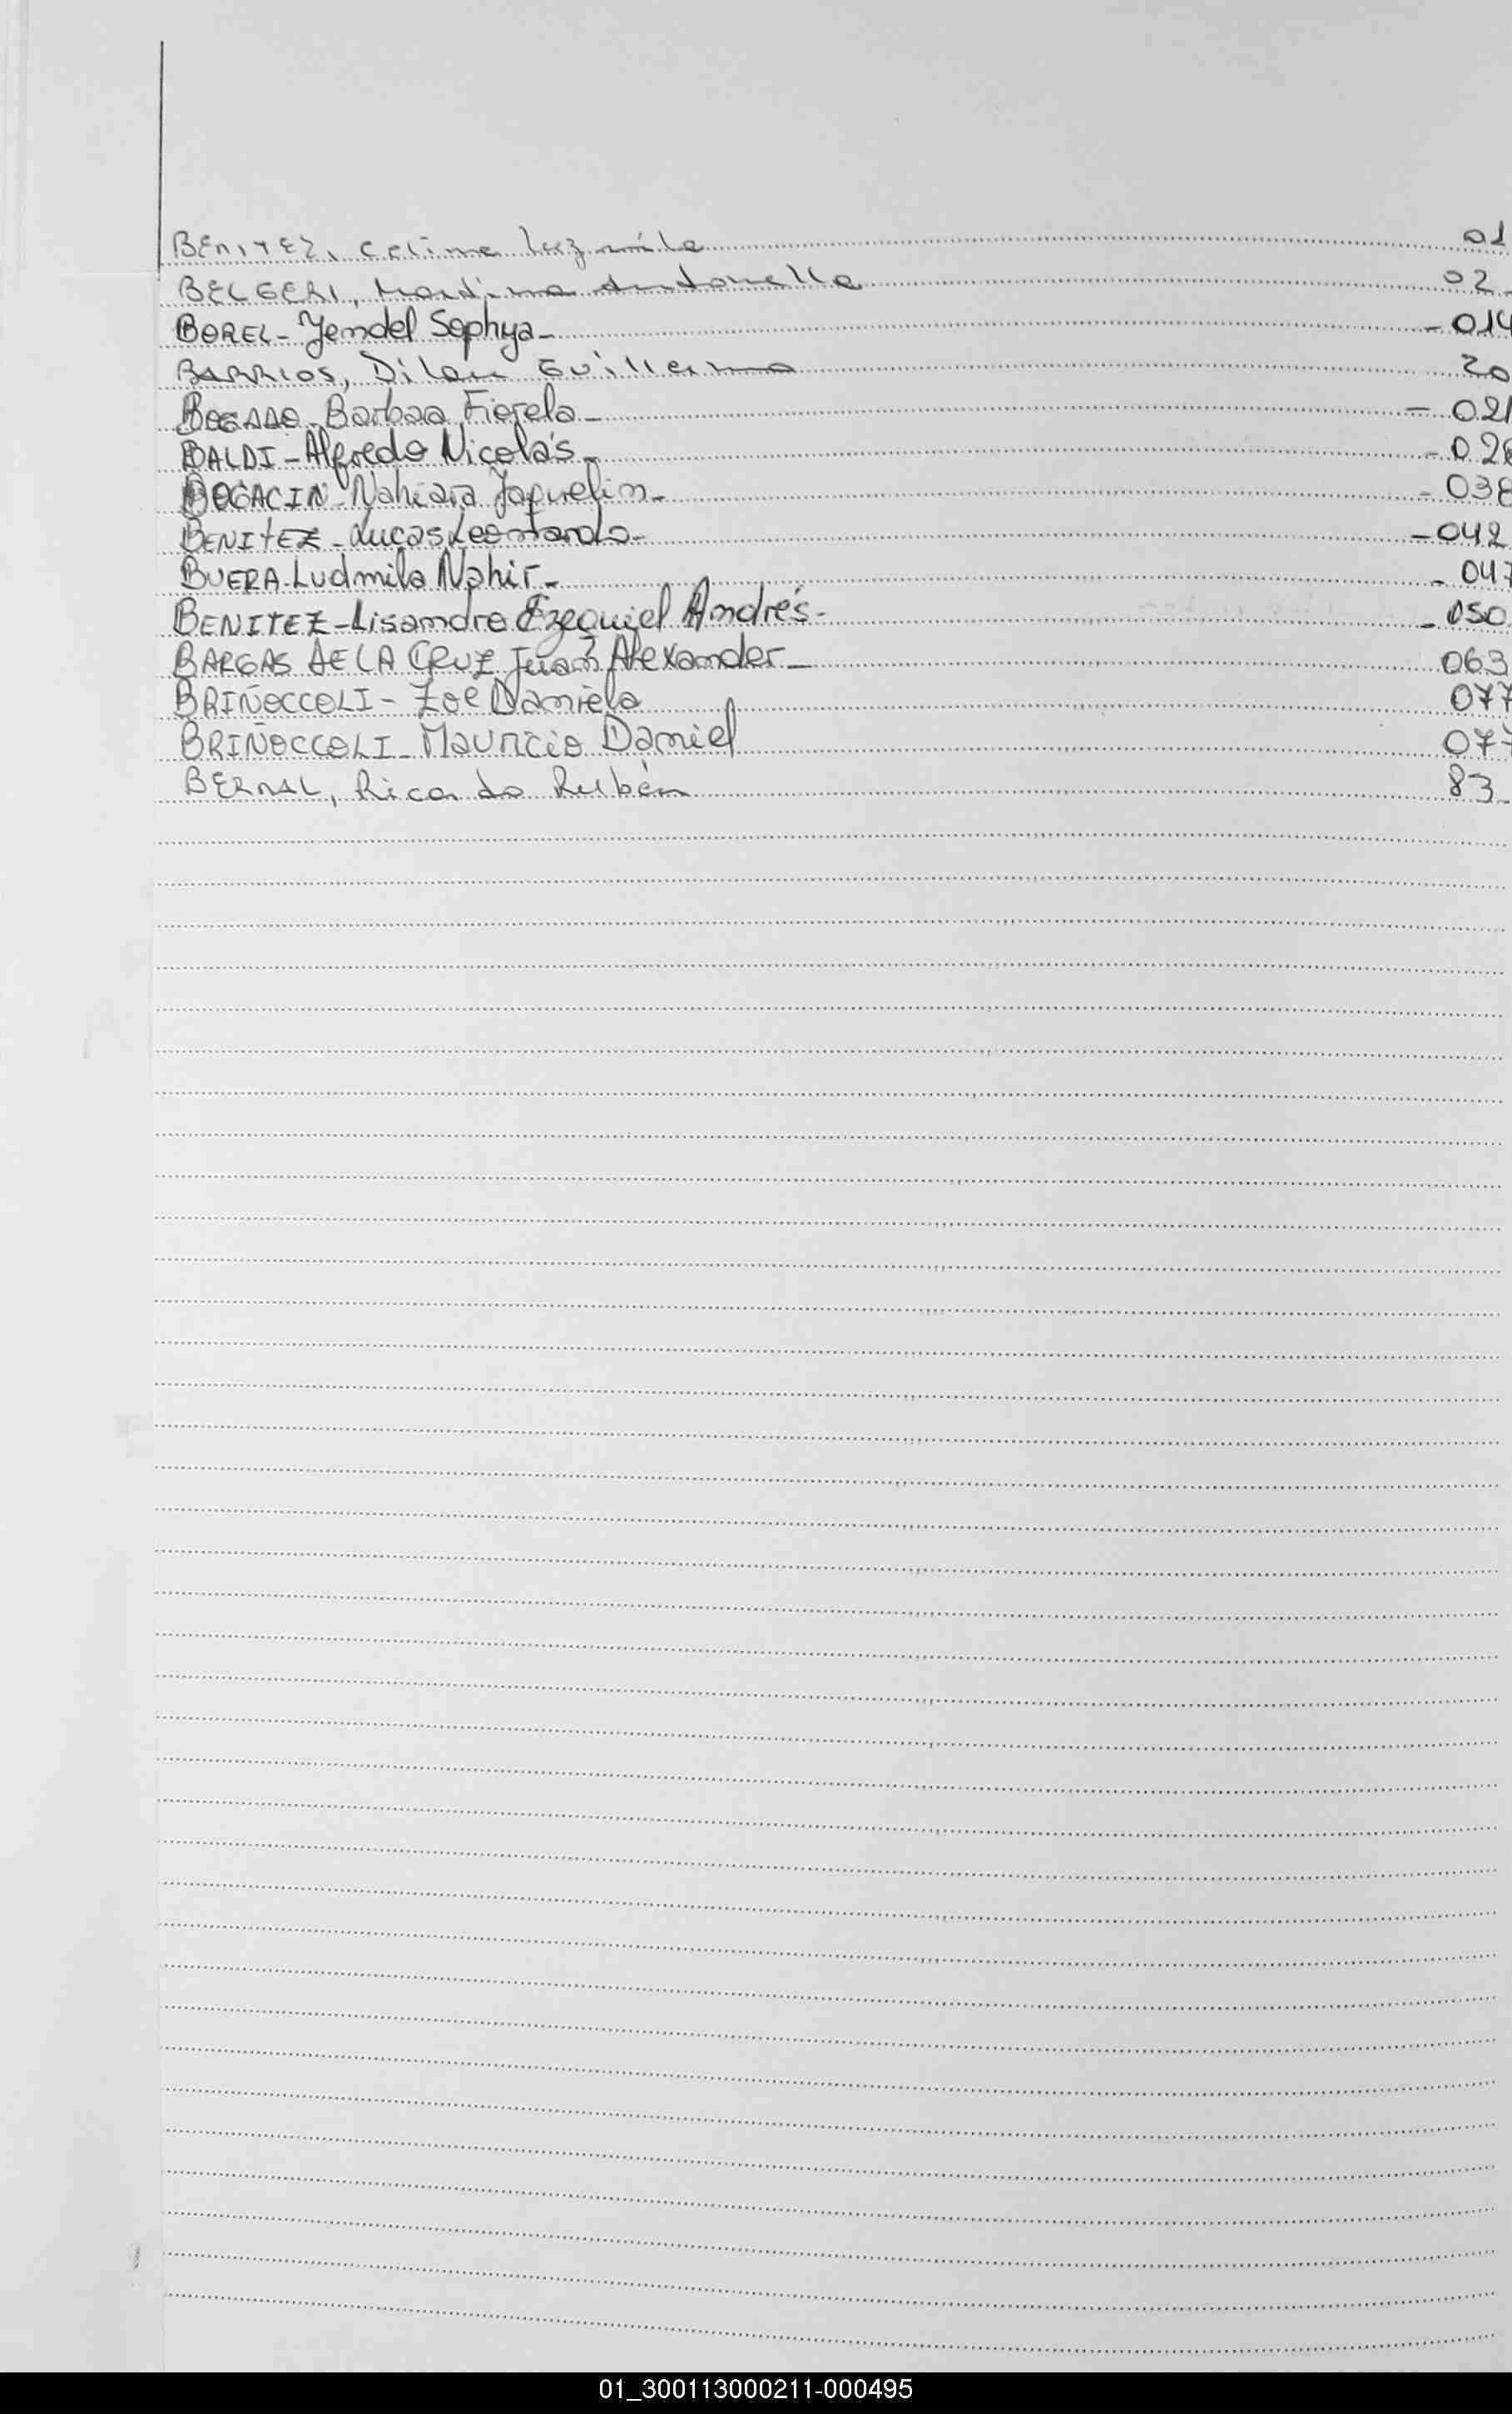 BENITEZ, Celina Luz mila 01
BELGERI, Martina Antonella 02-
BOREL- Jendel Sophya- -014
BARRIOS, Dilan Guillermo 20
BOGADO-Barbara Fiorela- - 021
BALDI-Alfredo Nicolás- -026
BOGACIN-Nahiara Jaquelin- -038
BENITEZ-Lucas Leonardo- -042
BUERA-Ludmila Nahir- -047
BENITEZ-Lisandro Ezequiel Andrés- -050
BARGAS DE LA CRUZ Juan Alexander- 063
BRIÑOCCOLI- Zoe Daniela 077
BRIÑOCCOLI-Mauricio Daniel 077
BERNAL, Ricardo Rubén 83-
01_300113000211-000495